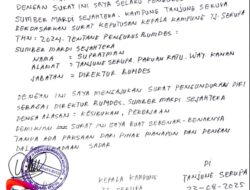 DENGAN SURAT INI SAYA SELAKU PENGURUS
SUMBER MARDI SEJAHTERA, KAMPUNG TANJUNG SERUPA
BERDASARKAN SURAT KEPUTUSAN KEPALA KAMPUNG
THN: 2024. TENTANG PENGURUS BUMDES:
SUMBER MARDI SEJAHTERA
NAMA : SUPRATMAN
ALAMAT : TANJUNG SERUPA. PAKUAN RATU. WAY. KANAN
JABATAN = DIREKTUR BUMDES
DENGAN INI SAYA MENGAJUKAN SURAT PENGUNDURAN DIRI
SEBAGAI DIREKTUR BUMDES. SUMBER MARDI SEJAHTERA
DENGAN ALASAN : KESIBUKAN, PEKERJAAN
DEMIKIAN SURAT INI SAYA BUAT SEBENAR-BENARNYA
TANPA ADA PAKSAAN DARI PIHAK MANAPUN DAN DENGAN
KEADAAN SADAR
DI
KEPALA KAMPUNG TANJUNG SERUPA
22-08-2025